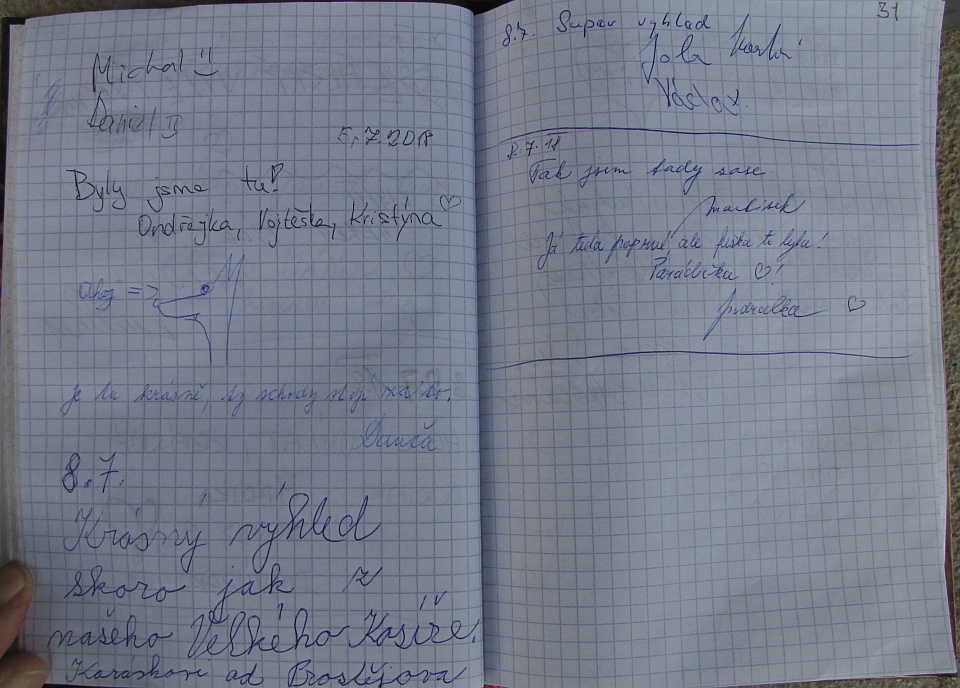 Michal
Daniel II
5.7.2018
Byly jsme tu!
Ondřejka, Vojtěška, Kristýna
ahoj =>
Je tu krásně, ty schody stojí za to.
8.7.
Krásný výhled
skoro jak z
našeho Velkého Kosíře.
Karáskovi od Prostějova
31
8.7. Super výhled
Jola
Václav
8.7.18
Tak jsem tady zase.
Já teda poprvé, ale fuška to byla!
Parádička ♡!